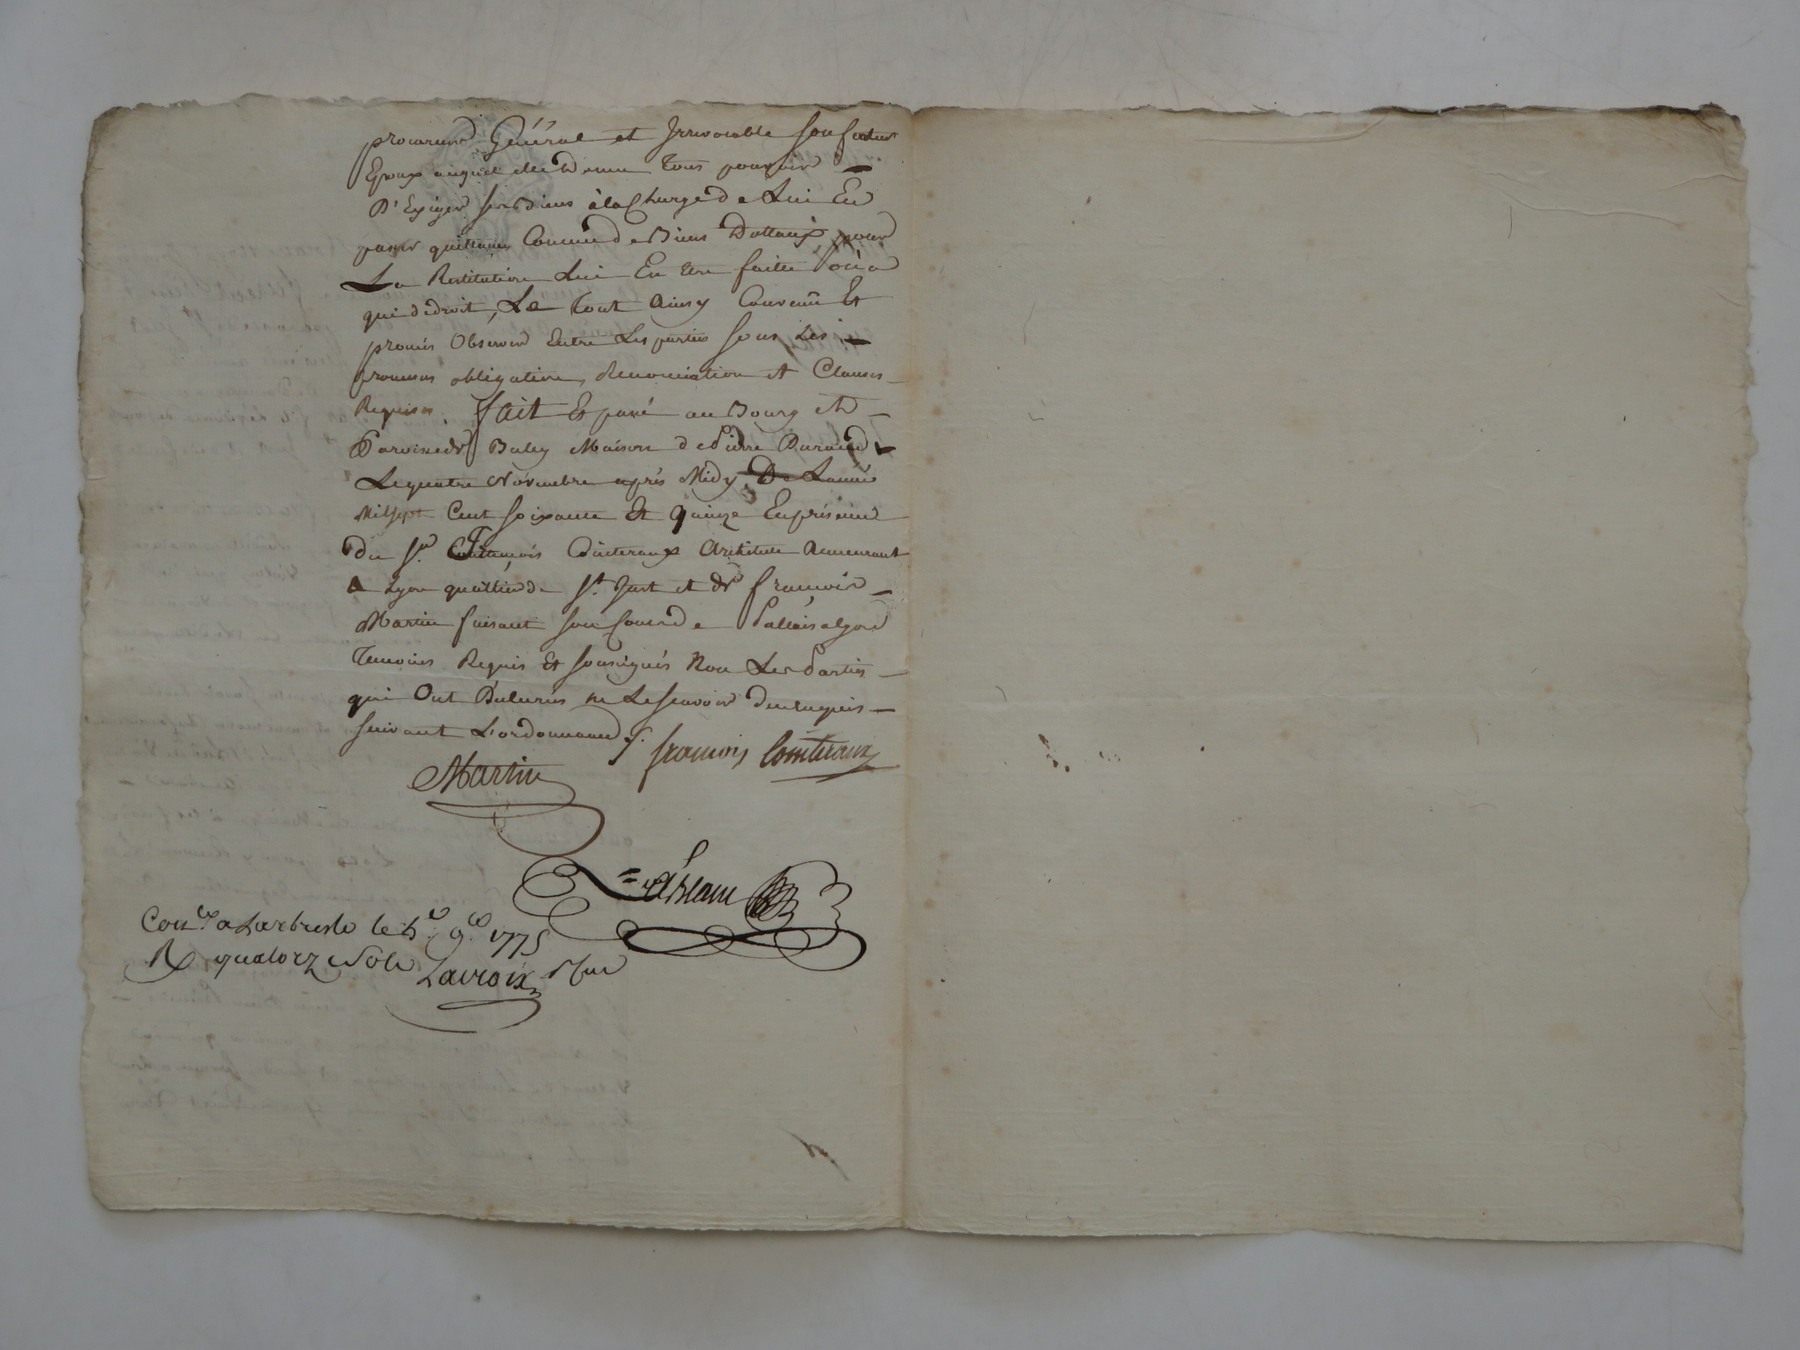 procureur Général et Irrevocable son futur
Epoux auquel elle donne tous pouvoir
D'Exiger ses Biens à la Charge de Lui En
passer quittance Comme de Biens Dottaux, pour
La Restitution Lui En Etre faitte où a
qui de droit, Le Tout Ainsy Convenû Et
promis Observer Entre Les parties Sous Les
promesses obligations, Renonciation et Clauses
Requises. fait Et passé au Bourg et
Parroisse de Bully Maison de Pierre Duraud
Le quatre Novembre après Midy De Lannée
Mil Sept Cent Soixante Et quinze En présence
du Sr. François Cointeraux Architecte demeurant
a Lyon quartier de St. Just et de Sr françois
Martin faisant son Cours de
Temoins Requis Et Soussignés Non Les Parties
qui Ont Déclarés ne Le Scavoir de ce enquis
suivant L'ordonnance.
françois Cointeraux
Martin
Conlé a Larbresle le 5e. 9bre 1775
R quatorze sols Lacroix